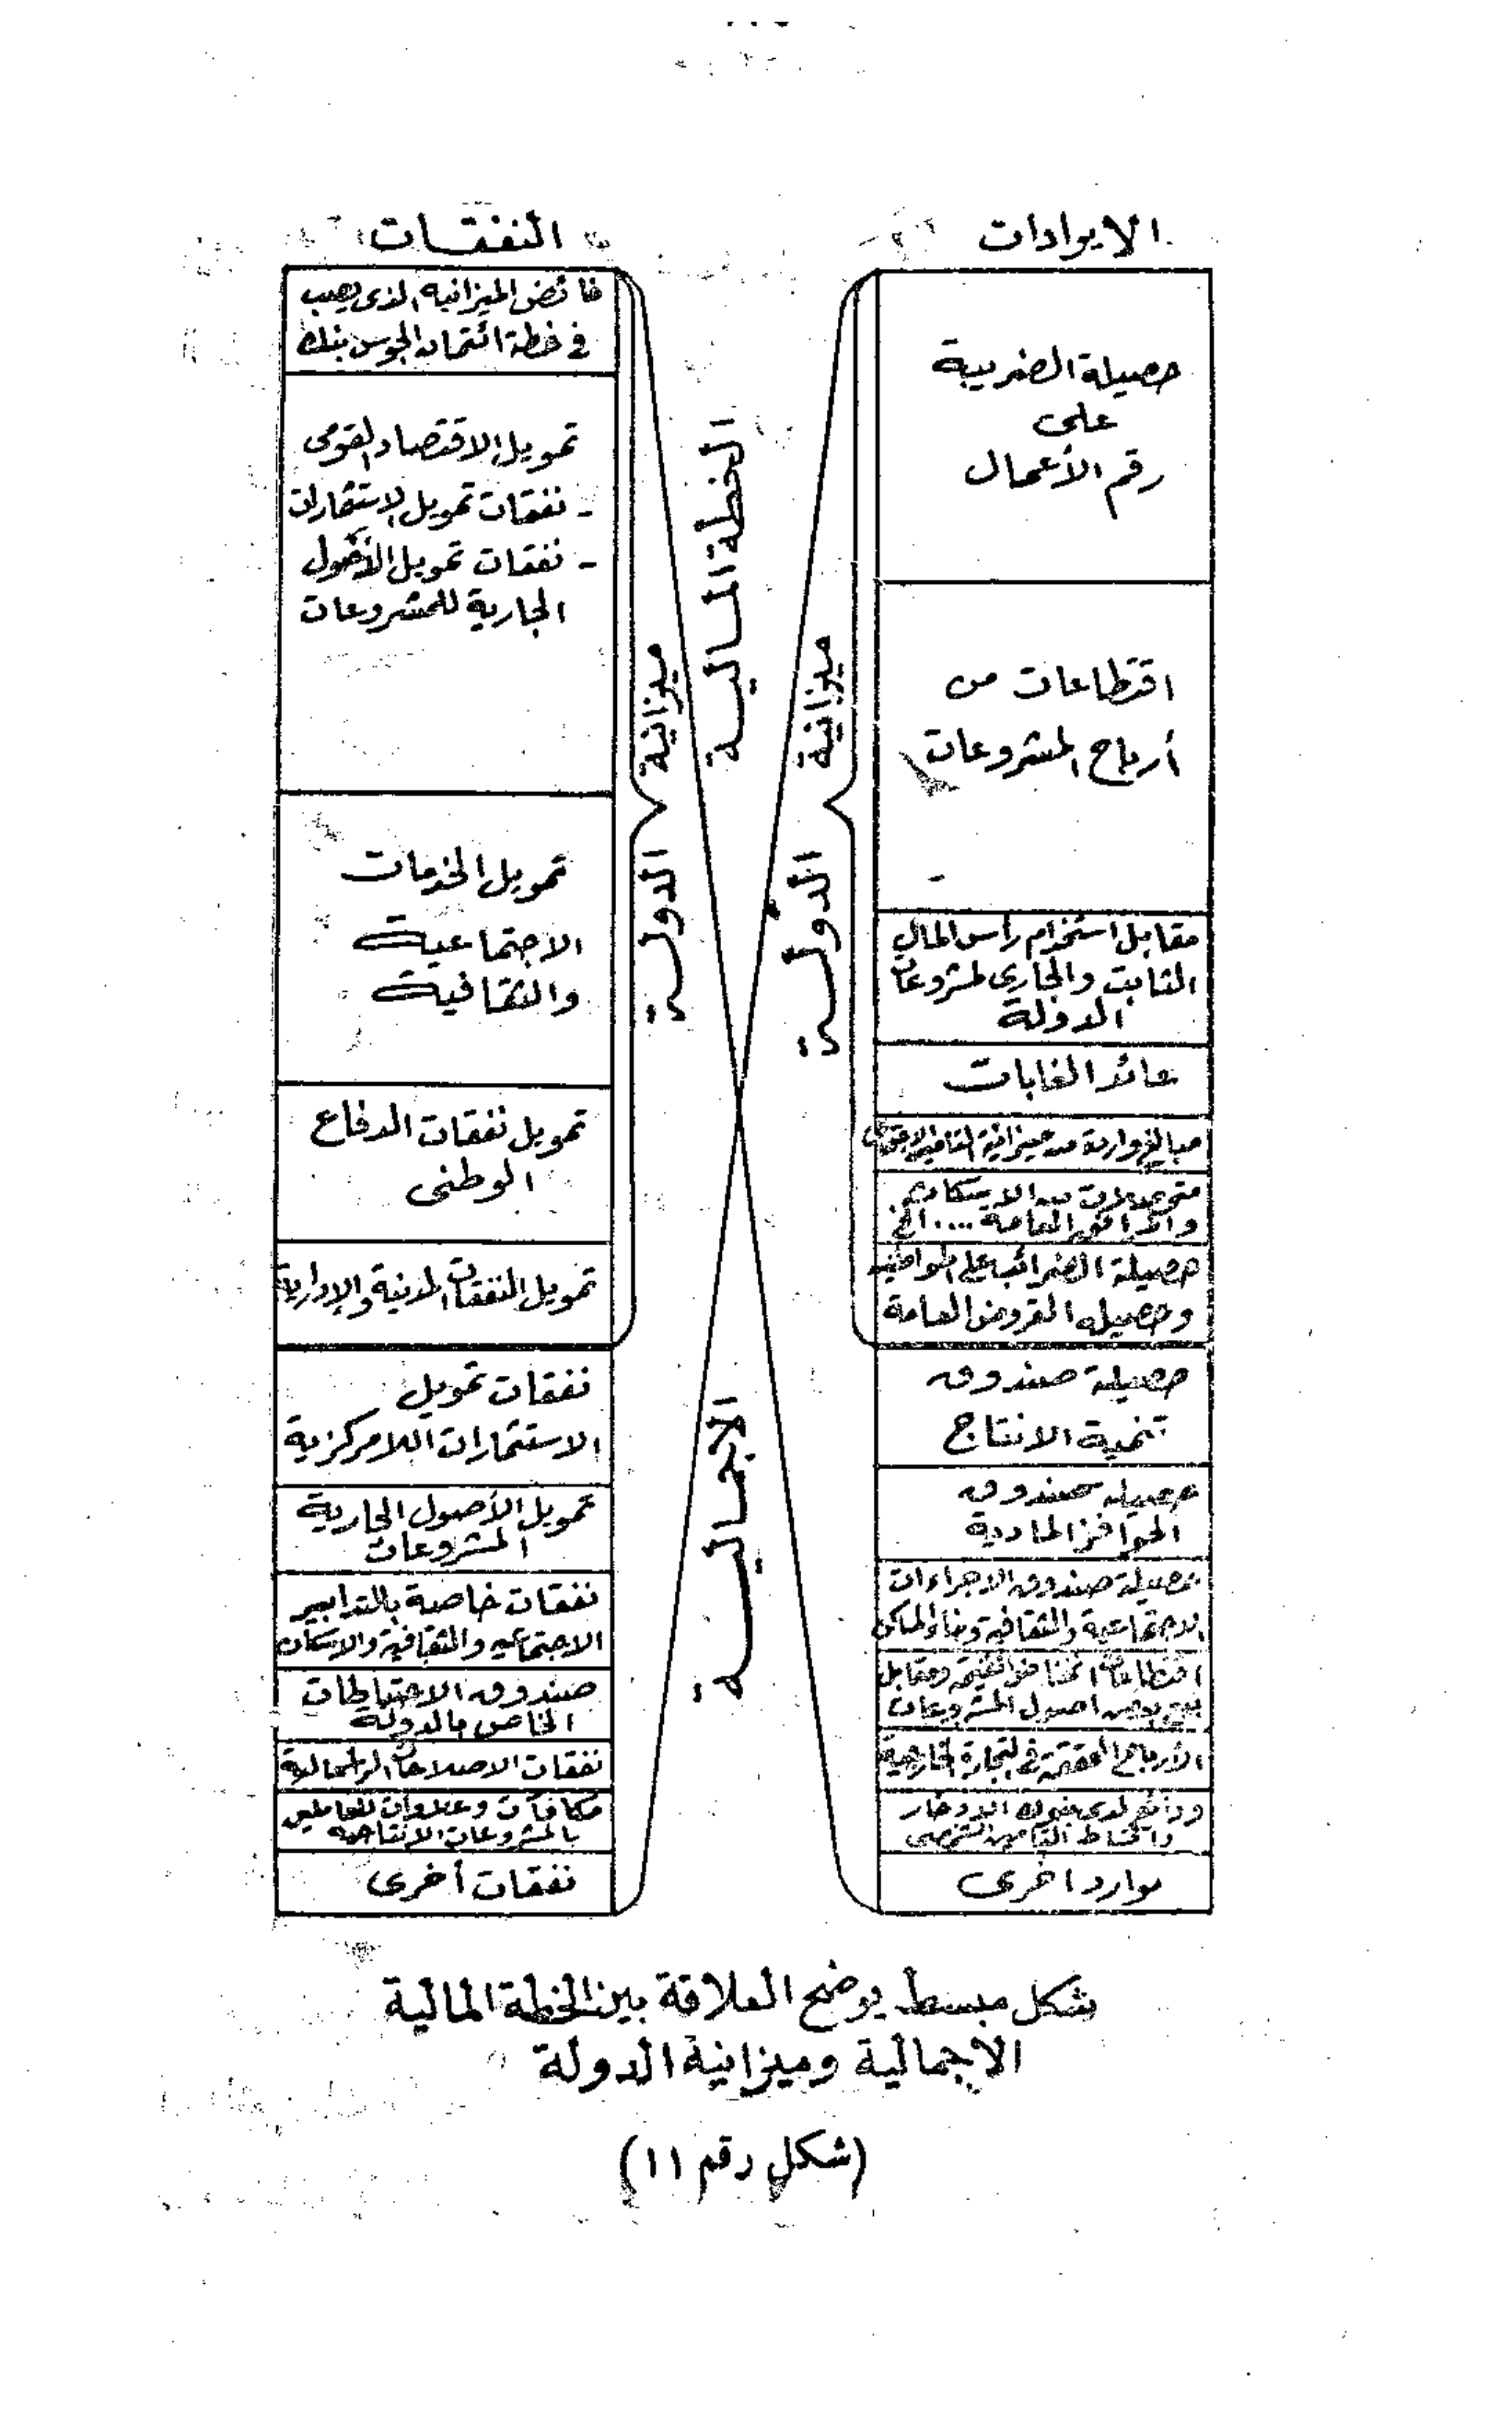 الايرادات
حصيلة الضريبة
على
رقم الأعمال
اقتطاعات من
أرباح المشروعات
مقابل استخدام رأس المال
الثابت والجارى لمشروعات
الدولة
عائد الغابات
مبالغ واردة من ميزانية التأمين الاجتماعى
متحصلات من الاسكان
والمرافق العامة .... الخ
حصيلة الضرائب على المواطنين
وحصيلة القروض العامة
حصيلة صندوق
تنمية الانتاج
حصيلة صندوق
الحوافز المادية
حصيلة صندوق الاجراءات
الاجتماعية والثقافية وبناء المساكن
اقتطاعات
ومقابل
بيع بعض اصول المشروعات
الأرباح المحققة فى التجارة الخارجية
ودائع لدى بنوك الادخار
التأمين الشخصى
موارد اخرى
ميزانية
الدولة
الخطة المالية
الاجمالية
ميزانية
الدولة
النفقات
فائض الميزانية الذى يصب
فى خطة ائتمان الجوس بنك
تمويل الاقتصاد القومى
- نفقات تمويل الاستثمارات
- نفقات تمويل الأصول
الجارية للمشروعات
تمويل الخدمات
الاجتماعية
والثقافية
تمويل نفقات الدفاع
الوطنى
تمويل النفقات المدنية والإدارية
نفقات تمويل
الاستثمارات اللامركزية
تمويل الأصول الجارية
للمشروعات
نفقات خاصة بالتدابير
الاجتماعية والثقافية والاسكان
صندوق الاحتياطات
الخاص بالدولة
نفقات الاصلاحات الرأسمالية
مكافآت وعلاوات للعاملين
بالمشروعات الانتاجية
نفقات أخرى
شكل مبسط يوضح العلاقة بين الخطة المالية
الاجمالية وميزانية الدولة
(شكل رقم ١١)